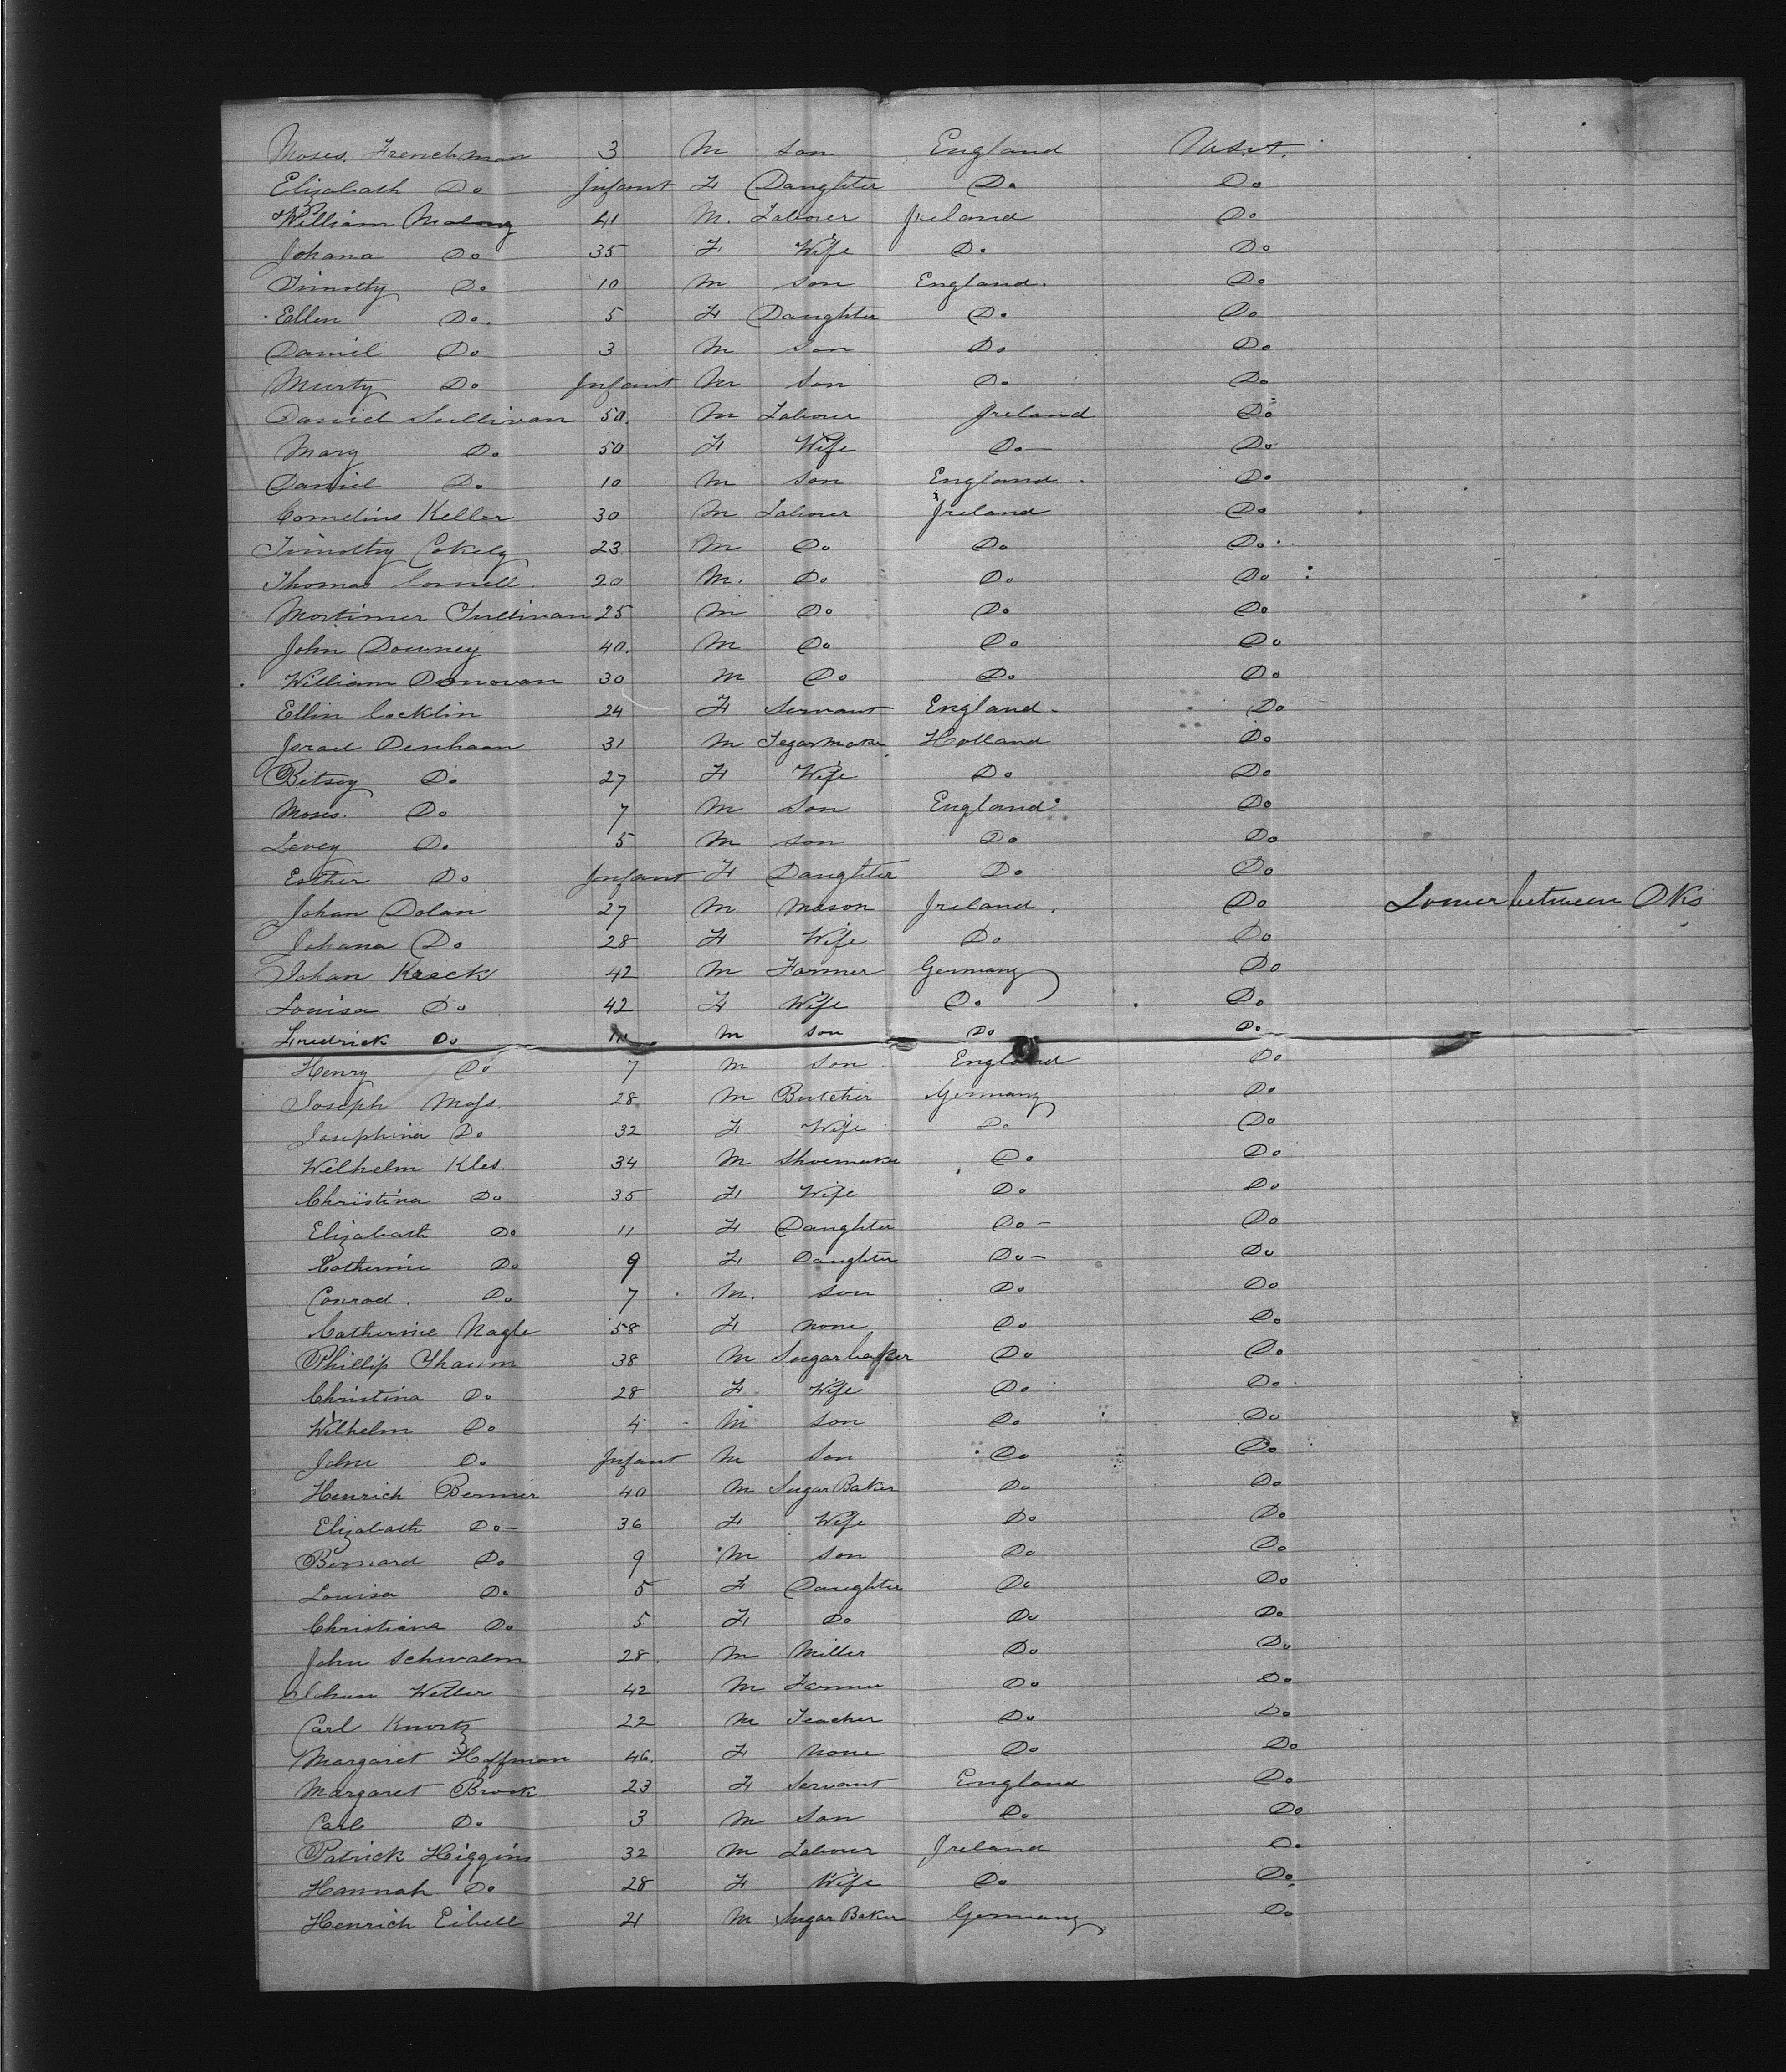 Moses Frenchman 3 M son England U.S.A.
Elizabeath Do Infant F Daughter Do Do
William Malony 41 M. Labourer Ireland Do
Johana Do 35 F Wife Do Do
Timothy Do 10 M son England. Do
Ellen Do. 5 F Daughter Do Do
Daniel Do 3 M Son Do Do
Murty Do Infant M Son Do Do
Daniel Sullivan 50. M Labour Ireland Do
Mary Do 50 F Wife Do Do
Daniel Do 10 M Son England Do
Cornelius Keller 30 M Labour Ireland Do
Timothy Cokely 23 M Do Do Do
Thomas Connell 20 M. Do Do Do
Mortimer Sullivan 25 M Do Do Do
John Downey 40. M Do Do Do
William Donovan 30 M Do Do Do
Ellin Cocklin 24 F Servant England Do
Israel Denhaan 31 M Segarmaker Holland Do
Betsey Do 27 F Wife Do Do
Moses. Do 7 M Son England Do
Levey Do 5 M son Do Do
Esther Do Infant F Daughter Do Do
Johan Dolan 27 M Mason Ireland. Do Lower between DKs
Johana Do 28 F Wife Do Do
Johan Kreck 42 M Farmer Germany Do
Louisa Do 42 F Wife Do Do
Fredrick Do M son Do Do
Henry Do 7 M Son England Do
Joseph Moss. 28 M Butcher Germany Do
Josephina Do 32 F Wife Do Do
Welhelm Kles. 34 M Shoemaker Do Do
Christina Do 35 F Wife Do Do
Elizabath Do 11 F Daughter Do Do
Catherine Do 9 F Daughter Do Do
Conrad. Do 7 M. Son Do Do
Catherine Nagle 58 F none Do Do
Phillip Thaum 38 M Sugarbaker Do Do
Christina Do 28 F Wife Do Do
Wilhelm Do 4 M Son Do Do
John Do Infant M Son Do Do
Henrich Benner 40 M Sugar Baker Do Do
Elizabath Do 36 F Wife Do Do
Bernard Do 9 M Son Do Do
Louisa Do 5 F Daughter Do Do
Christiana Do 5 F Do Do Do
John Schwalm 28. M Miller Do Do
Johan Weller 42 M Farmer Do Do
Carl Knortz 22 M Teacher Do Do
Margaret Hoffman 46. F None Do Do
Margaret Brook 23 F Servant England Do
Carl Do 3 M Son Do Do
Patrick Higgins 32 M Labour Ireland Do
Hannah Do 28 F Wife Do Do
Henrich Eibell 21 M Sugar Baker Germany Do